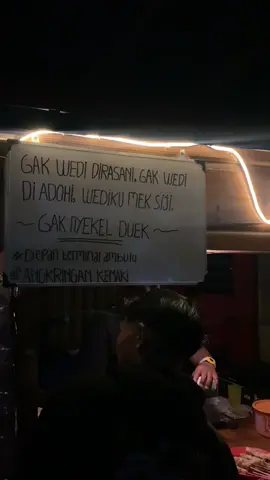 GAK WEDI DIRASANI, GAK WEDI
DI ADOHI, WEDIKU MEK SIJI.
~ GAK NYEKEL DUEK ~
#Depan terminal ambulu
#ANGKRINGAN KEMAKI